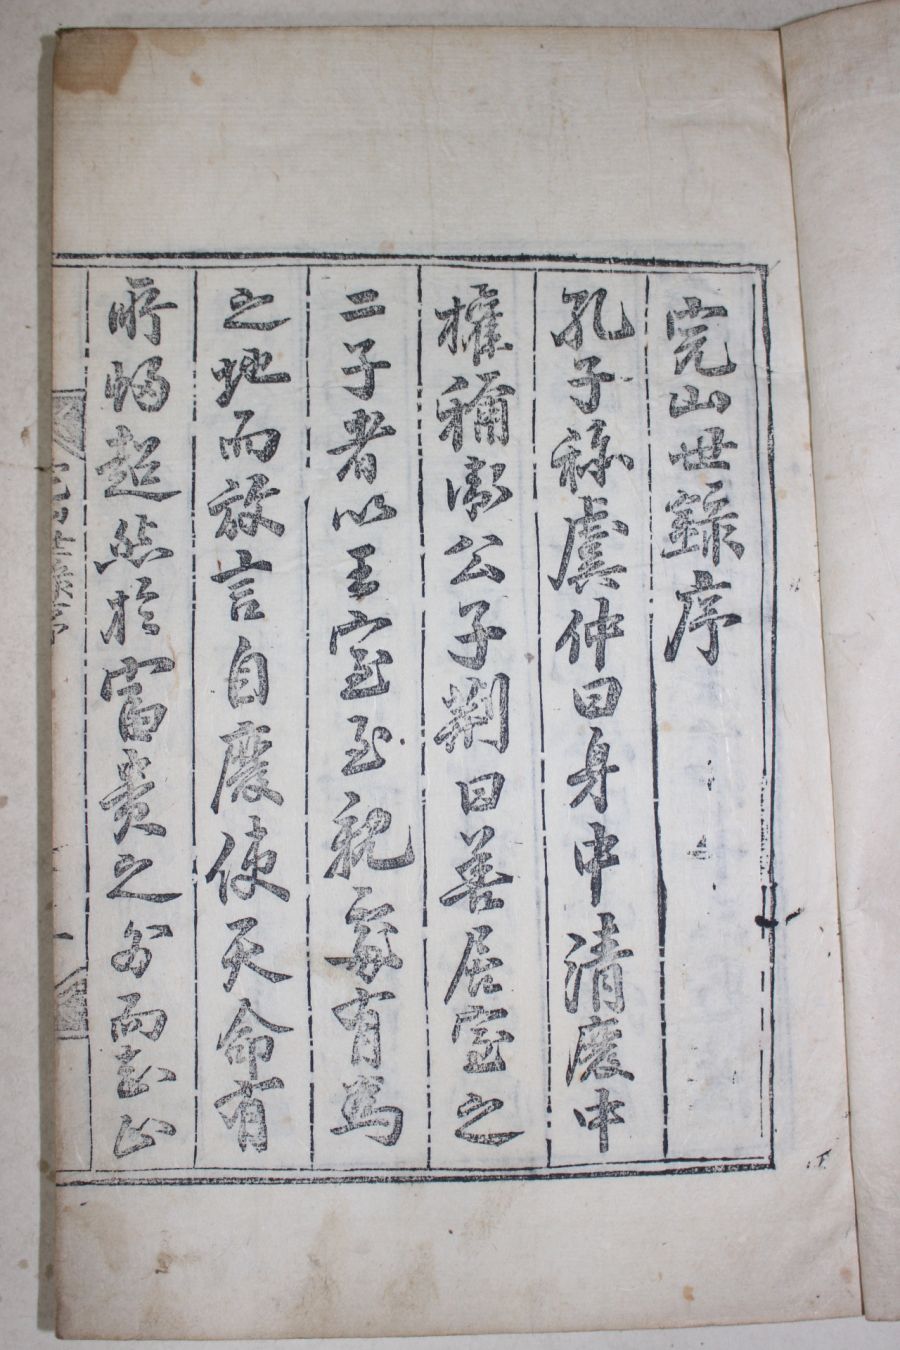 完山世錄序
孔子称虞仲曰身中清廢中
權稱衛公子荆曰善居室之
二子者以王室至親處有爲
之地而放言自廢使天命有
所歸超然於富貴之外而止
完山世錄序
一